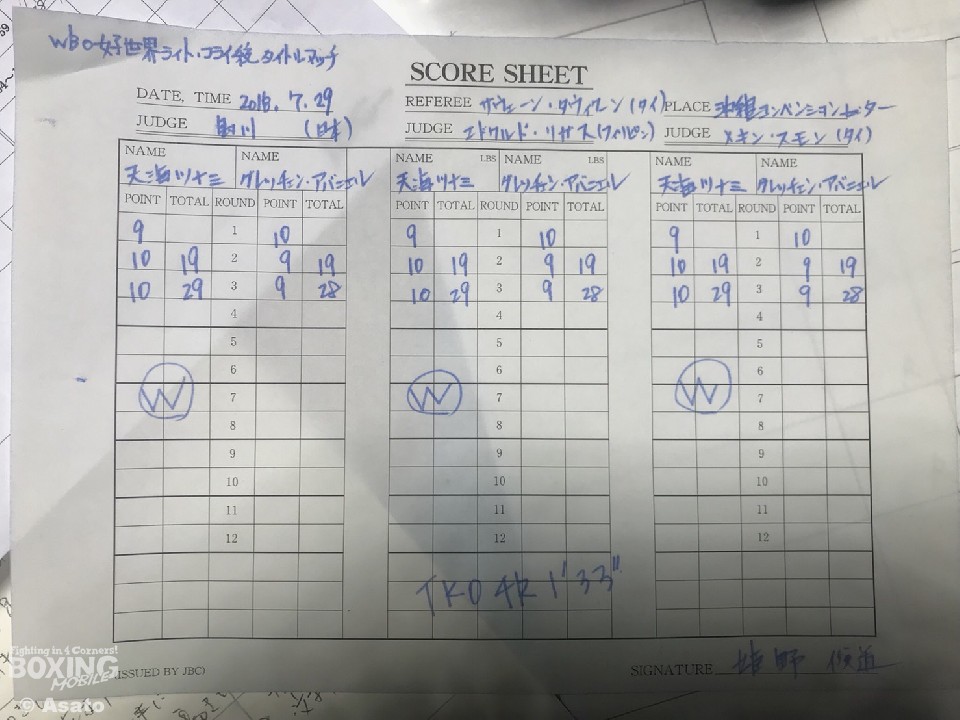 WBO女子世界ライト・フライ級タイトルマッチ
SCORE SHEET
DATE, TIME 2018. 7. 29 REFEREE (タイ) PLACE 沖縄コンベンションセンター
JUDGE (日本) JUDGE エドワルド・リガス(フィリピン) JUDGE (タイ)
NAME NAME NAME LBS NAME LBS NAME NAME
天海ツナミ グレッチェン・アバニエル 天海ツナミ グレッチェン・アバニエル 天海ツナミ グレッチェン・アバニエル
POINT TOTAL ROUND POINT TOTAL POINT TOTAL ROUND POINT TOTAL POINT TOTAL ROUND POINT TOTAL
9 1 10 9 1 10 9 1 10
10 19 2 9 19 10 19 2 9 19 10 19 2 9 19
10 29 3 9 28 10 29 3 9 28 10 29 3 9 28
4 4 4
5 5 5
6 6 6
W 7 W 7 W 7
8 8 8
9 9 9
10 10 10
11 11 11
12 12 12
TKO 4R 1'33"
Fighting in 4 Corners!
BOXING
MOBILE
ISSUED BY JBC) SIGNATURE
© Asato